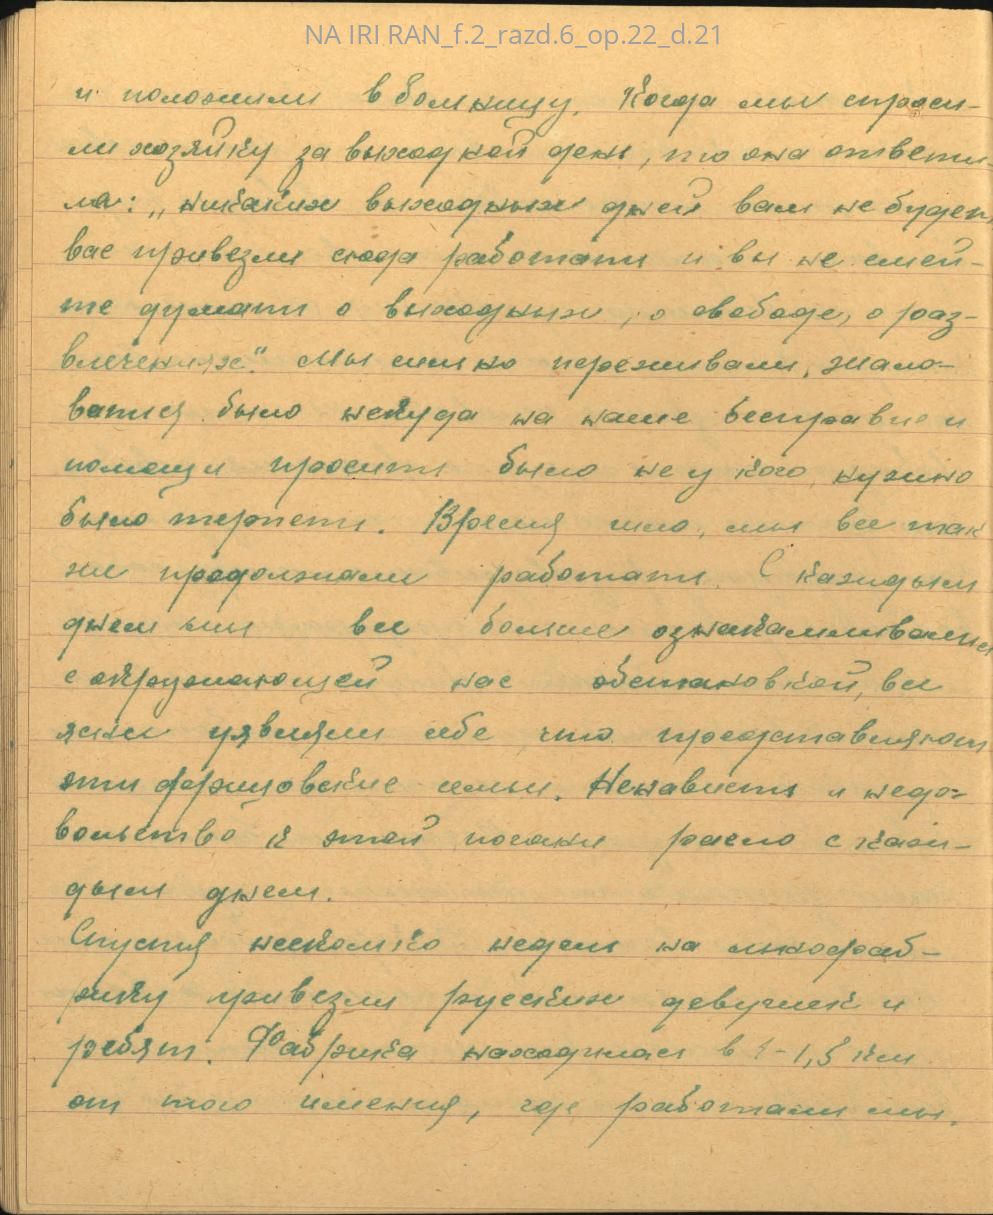 NA IRI RAN_f.2_razd.6_op.22_d.21
и положили в больницу. Когда мы спроси-
ли хозяйку за выходной день, то она ответи
ла: „никаких выходных дней вам не будет,
вас привезли сюда работать и вы не смей-
те думать о выходных, о свободе, о раз-
влечениях". Мы сильно переживали, жало-
ваться было некуда на наше бесправие и
помощи просить было не у кого, нужно
было терпеть. Время шло, мы все так
же продолжали работать. С каждым
днем мы все больше ознакамливались
с окружающей нас обстановкой, все
яснее уявляли себе что представляют
эти фрицовские семьи. Ненависть и недо-
вольство к этой погани росло с каж-
дым днем.
Спустя несколько недель на льнофаб-
рику привезли русских девушек и
ребят. Фабрика находилась в 1-1,5 км
от того имения, где работали мы.